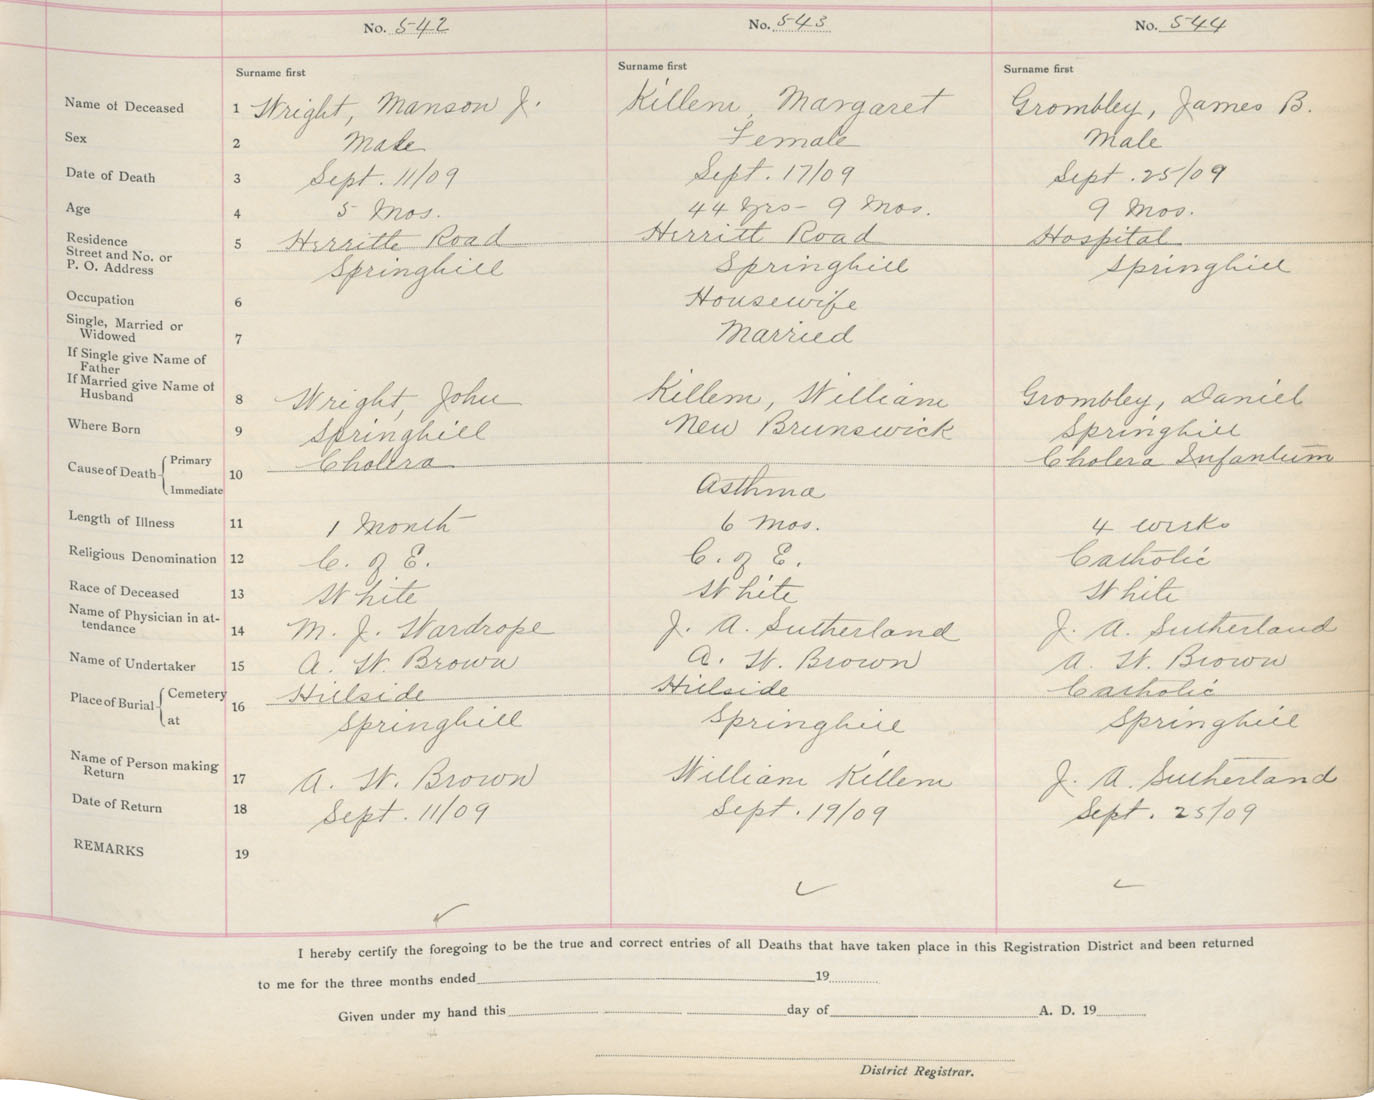 No. 542 No. 543 No. 544
Surname first Surname first Surname first
Name of Deceased 1 Wright, Manson J. Killem, Margaret Grombley, James B.
Sex 2 Male Female Male
Date of Death 3 Sept. 11/09 Sept. 17/09 Sept. 25/09
Age 4 5 Mos. 44 Yrs - 9 Mos. 9 Mos.
Residence 5 Herritte Road Herritt Road Hospital
Street and No. or
P. O. Address Springhill Springhill Springhill
Occupation 6 Housewife
Single, Married or
Widowed 7 Married
If Single give Name of
Father
If Married give Name of
Husband 8 Wright, John Killem, William Grombley, Daniel
Where Born 9 Springhill New Brunswick Springhill
Cause of Death Primary 10 Cholera Cholera Infantum
Immediate Asthma
Length of Illness 11 1 Month 6 Mos. 4 weeks
Religious Denomination 12 C. of E. C. of E. Catholic
Race of Deceased 13 White White White
Name of Physician in at-
tendance 14 M. J. Wardrope J. A. Sutherland J. A. Sutherland
Name of Undertaker 15 A. W. Brown A. W. Brown A. W. Brown
Place of Burial Cemetery 16 Hillside Hillside Catholic
at Springhill Springhill Springhill
Name of Person making
Return 17 A. W. Brown William Killem J. A. Sutherland
Date of Return 18 Sept. 11/09 Sept. 19/09 Sept. 25/09
REMARKS 19
I hereby certify the foregoing to be the true and correct entries of all Deaths that have taken place in this Registration District and been returned
to me for the three months ended 19
Given under my hand this day of A. D. 19
District Registrar.